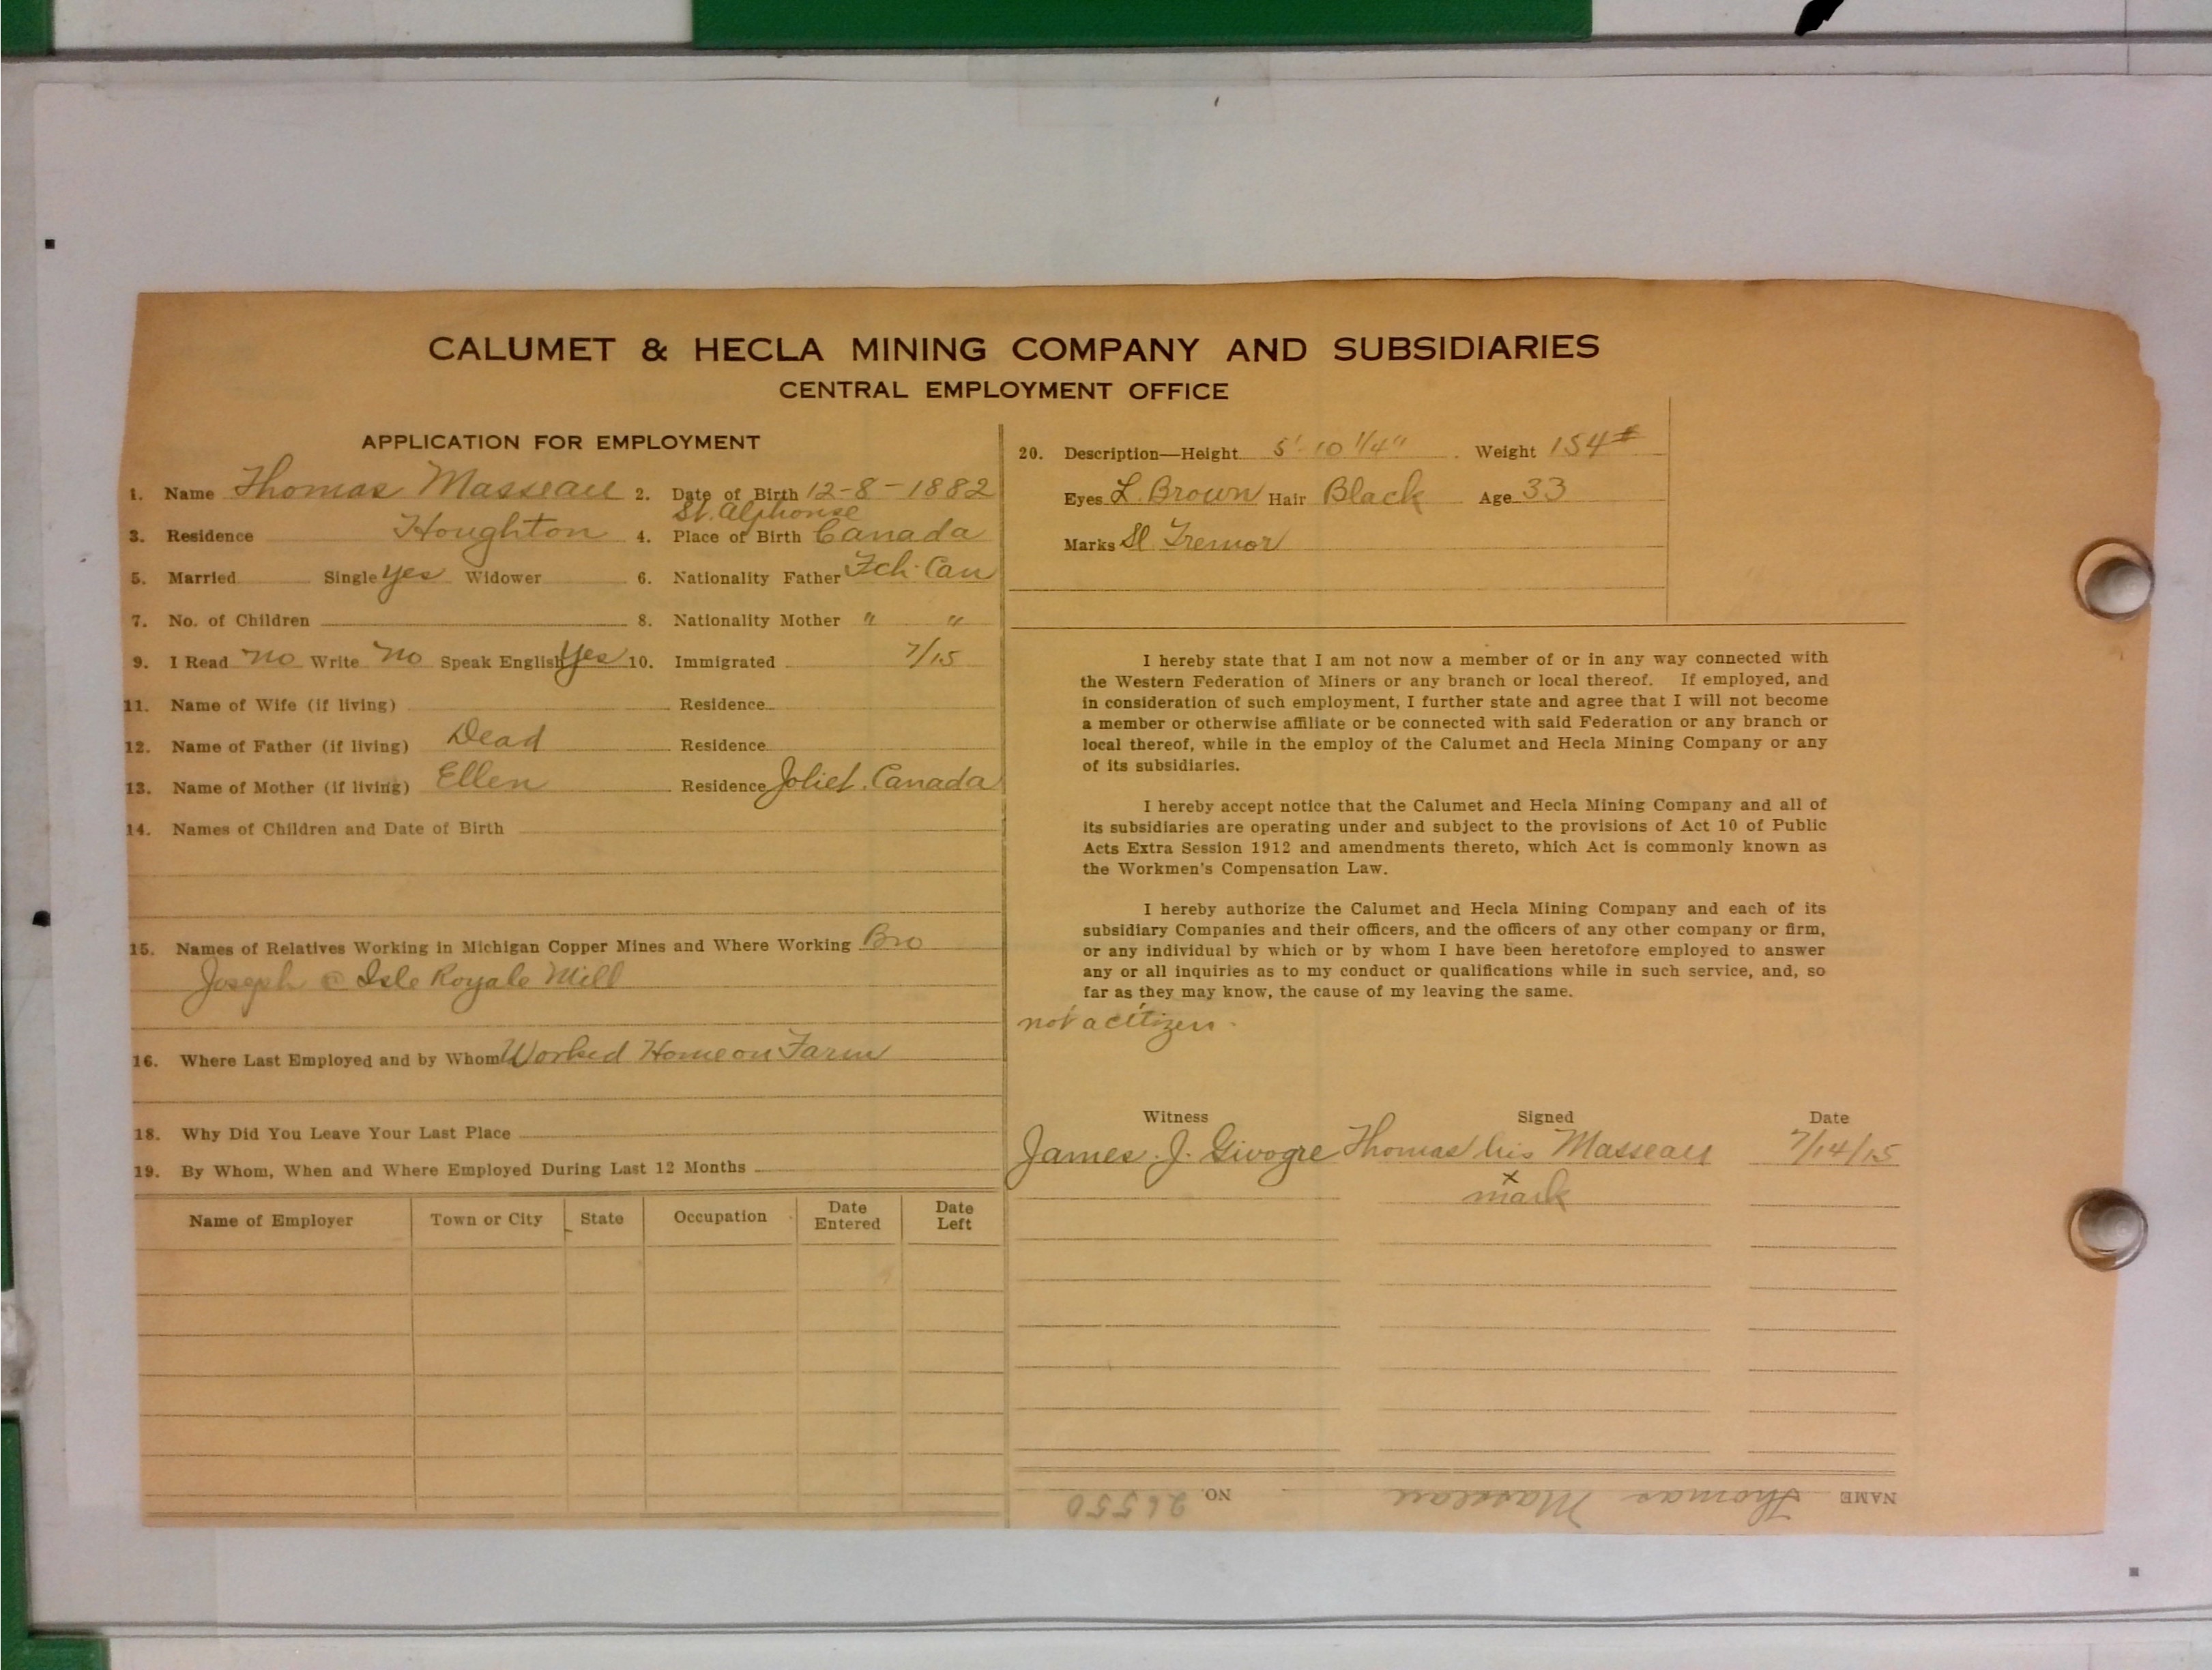 CALUMET & HECLA MINING COMPANY AND SUBSIDIARIES
CENTRAL EMPLOYMENT OFFICE
APPLICATION FOR EMPLOYMENT
1. Name Thomas Masseau 2. Date of Birth 12-8-1882
St. Alphonse
3. Residence Houghton 4. Place of Birth Canada
5. Married Single yes Widower 6. Nationality Father Fch. Can
7. No. of Children 8. Nationality Mother " "
9. I Read no Write no Speak English Yes 10. Immigrated 7/15
11. Name of Wife (if living) Residence
12. Name of Father (if living) Dead Residence
13. Name of Mother (if living) Ellen Residence Joliet. Canada
14. Names of Children and Date of Birth
15. Names of Relatives Working in Michigan Copper Mines and Where Working Bro
Joseph @ Isle Royale Mill
16. Where Last Employed and by Whom Worked Home on Farm
18. Why Did You Leave Your Last Place
19. By Whom, When and Where Employed During Last 12 Months
Name of Employer Town or City State Occupation Date Entered Date Left
20. Description—Height 5' 10 1/4" Weight 154#
Eyes L. Brown Hair Black Age 33
Marks Sl. Tremor
I hereby state that I am not now a member of or in any way connected with
the Western Federation of Miners or any branch or local thereof. If employed, and
in consideration of such employment, I further state and agree that I will not become
a member or otherwise affiliate or be connected with said Federation or any branch or
local thereof, while in the employ of the Calumet and Hecla Mining Company or any
of its subsidiaries.
I hereby accept notice that the Calumet and Hecla Mining Company and all of
its subsidiaries are operating under and subject to the provisions of Act 10 of Public
Acts Extra Session 1912 and amendments thereto, which Act is commonly known as
the Workmen's Compensation Law.
I hereby authorize the Calumet and Hecla Mining Company and each of its
subsidiary Companies and their officers, and the officers of any other company or firm,
or any individual by which or by whom I have been heretofore employed to answer
any or all inquiries as to my conduct or qualifications while in such service, and, so
far as they may know, the cause of my leaving the same.
not a citizen.
Witness Signed Date
James J. Givogre Thomas his Masseau 7/14/15
x
mark
NAME Thomas Masseau NO. 26550